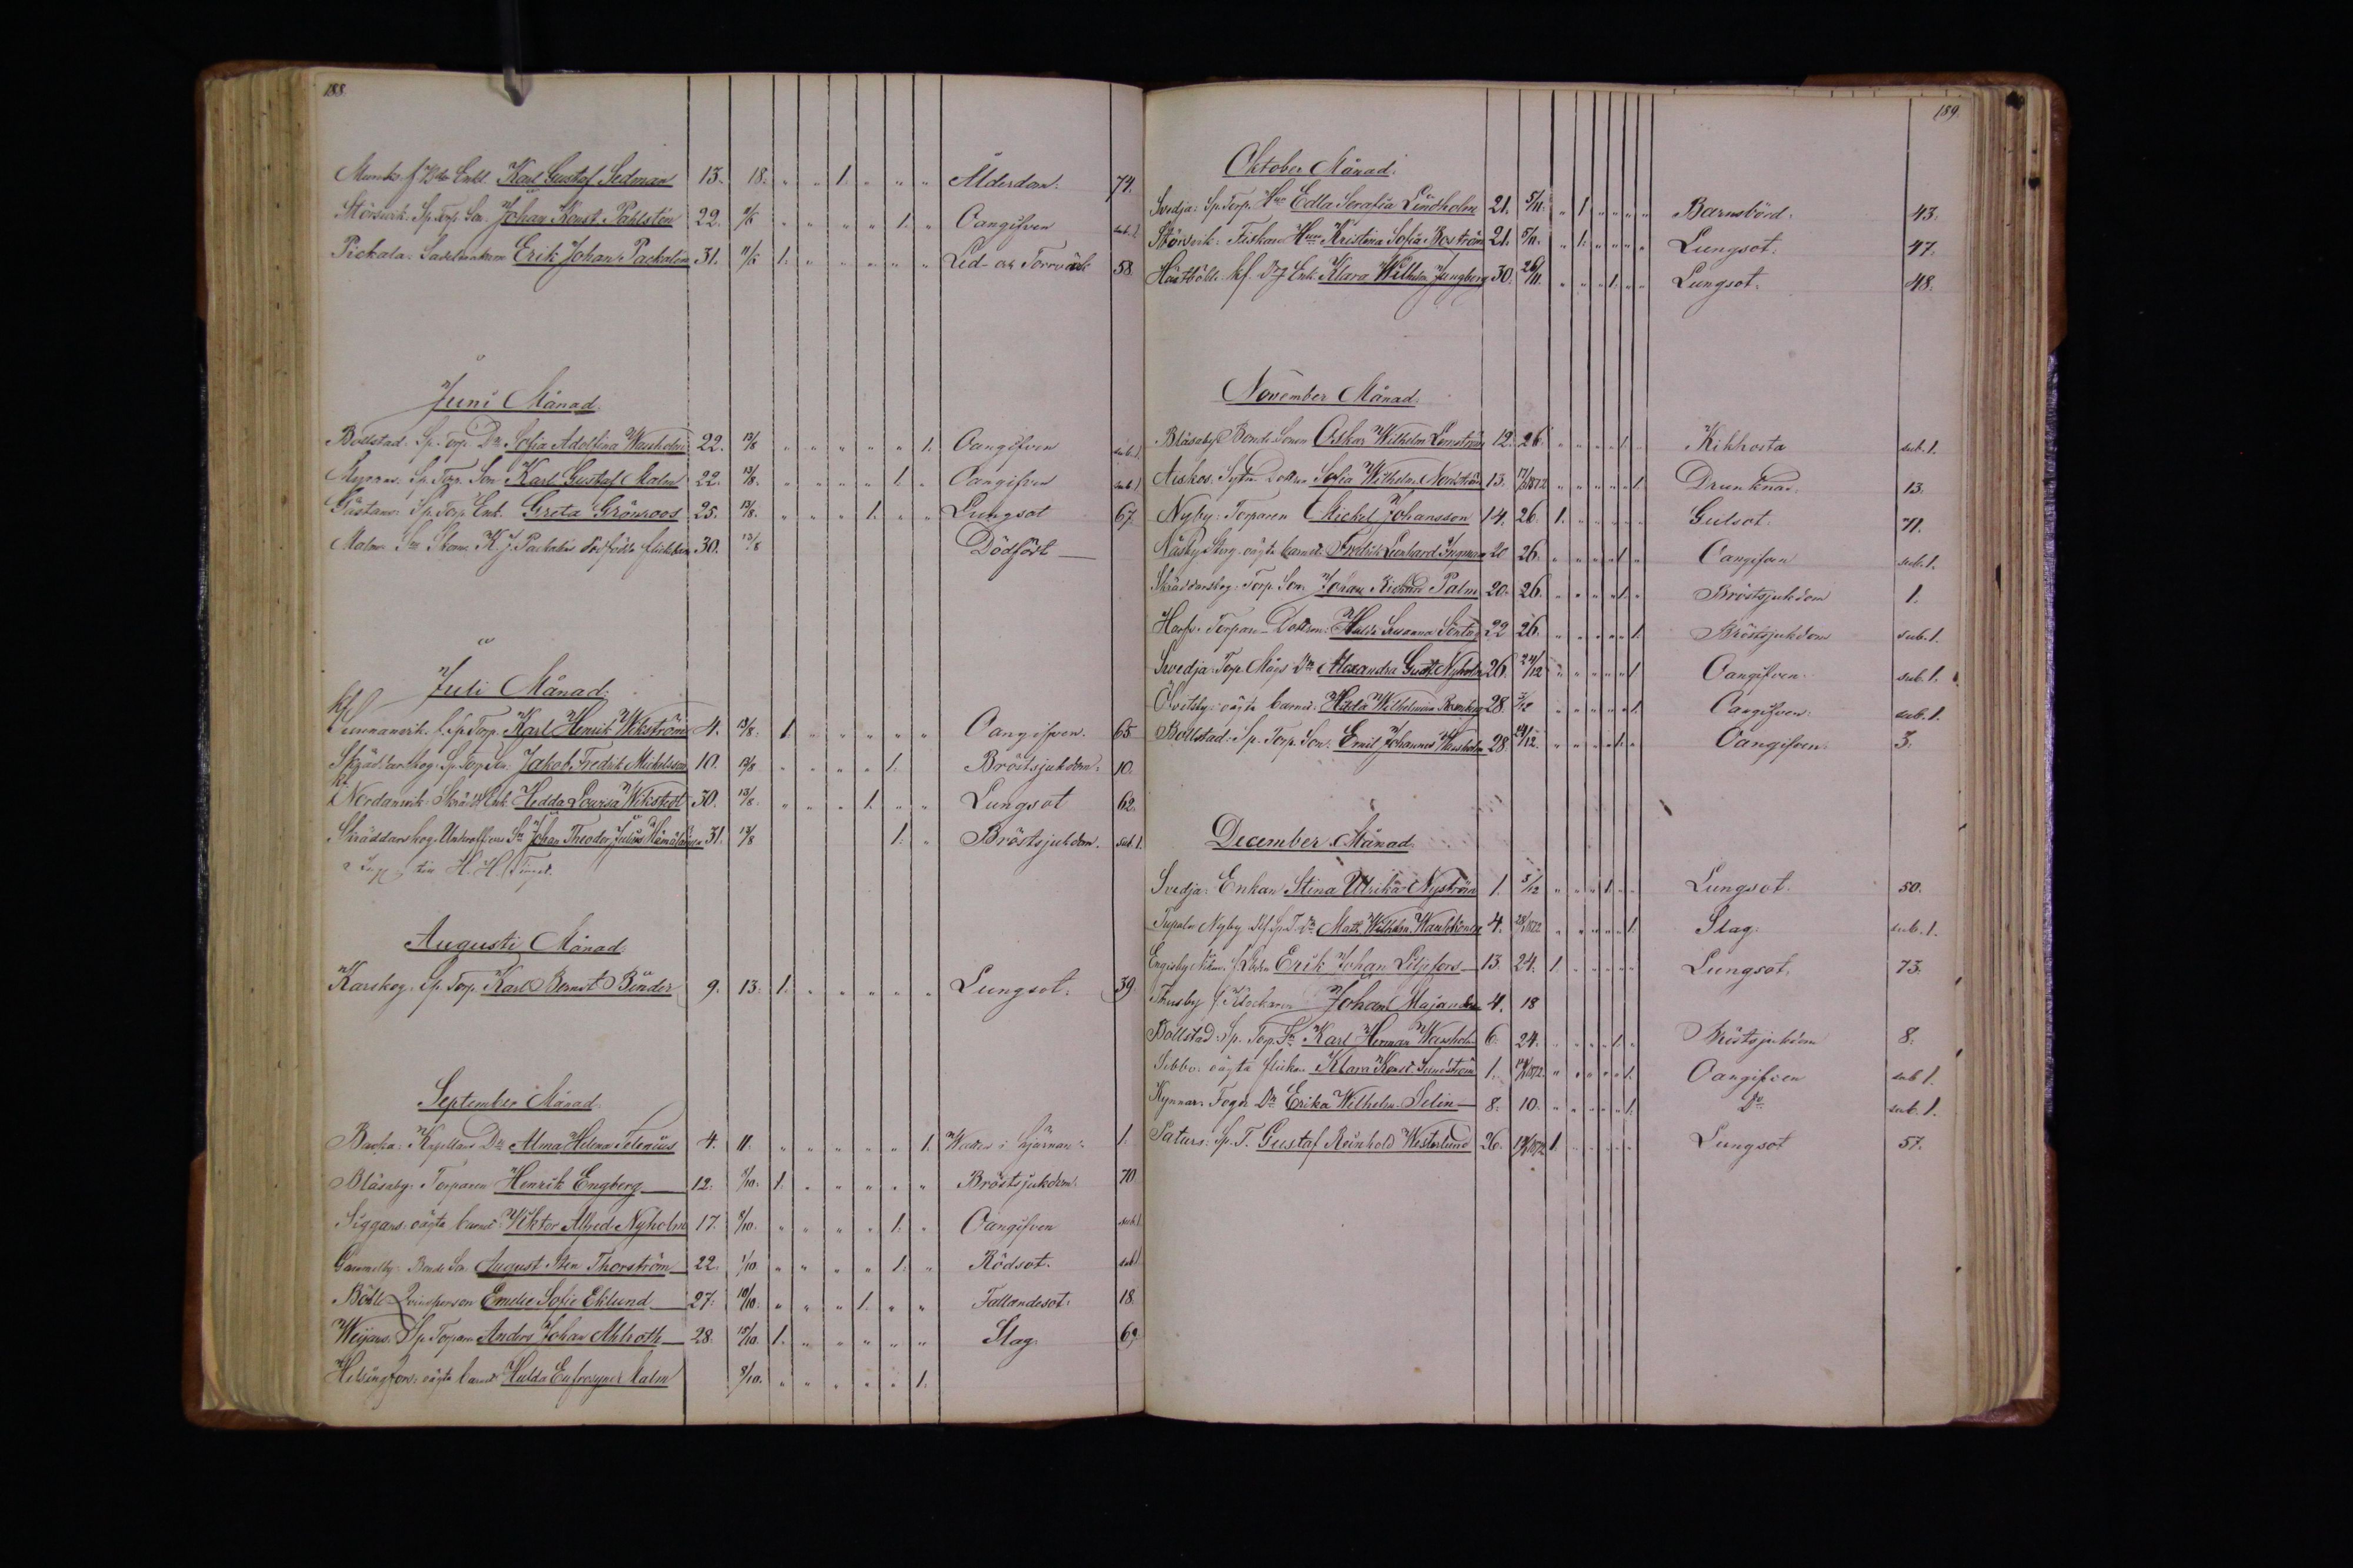 188.
Karl Gustaf Sedman 13. 18. " " 1. " " " Ålderdom. 74.
Störsvik. Sp. Torp. Son. Johan Konst. Pahlstén 22. " " " " 1. " Oangifven sub. 1.
Pickala. Sadelmakaren Erik Johan Packalén 31. 1. " " " " " Led- och Torrvärk 58
Juni Månad.
Böllstad. Sp. Torp. Dr Sofia Adolfina Wauholm 22. 13/8 " " " " " 1. Oangifven sub. 1.
Sp. Torp. Son Karl Gustaf Malm 22. 13/8. " " " " 1. " Oangifven sub. 1
Gästans. Sp. Torp. Enk. Greta Grönroos 25. 13/8. " " " 1. " " Lungsot 67
Malm. K. J. Packalén dödfödda flickebarn 30. 13/8 Dödfödt —
Juli Månad.
kf
Sunnanvik. f. Sp. Torp. Karl Henrik Wikström 4. 13/8. 1. " " " " " Oangifven. 65
Skräddarskog. Sp. Torp. Son. Jakob Fredrik Mickelsson 10. 13/8 " " " " 1. Bröstsjukdom. 10.
kf.
Nordanvik. Enk. Hedda Lovisa Wikstedt 30. 13/8. " " " 1. " " Lungsot 62.
Skräddarskog. Underofficers Sn Johan Theodor Julius Hämäläinen 31. 13/8 1. " Bröstsjukdom. sub. 1.
H. H.
Augusti Månad.
Karskog. Sp. Torp. Karl Bernst. Binder 9. 13. 1. " " " " " Lungsot. 39
September Månad.
Kapellans Dr Alma Helena Selenius 4. 11. " " " " " 1. Watten i hjernan. 1.
Bläsaby. Torparen Henrik Engberg — 12. 8/10. 1. " " " " " Bröstsjukdom. 70
Siggans. oägta barnet Wiktor Alfred Nyholm 17. 8/10. " " " " 1. " Oangifven sub. 1
Gammelby. Bonde Son. August Sten Thorström — 22. 1/10 " " " " 1. " Rödsot. sub. 1
Böhle Qvinsperson Emelie Sofie Eklund — 27. 10/10. " " " 1. " " Fallandesot. 18.
Weijans. Sp. Torparen Anders Johan Ahlroth — 28. 15/10. 1. " " " " " Slag. 69
Helsingfors. oägta barnet Hulda Eufrosyne Malm 8/10. " " " " " 1.
189.
Oktober Månad.
Svedja. Sp. Torp. Hus Edla Serafia Lindholm 21. 5/11. " 1. " " " " Barnsbörd. 43.
Störsvik. Fiskare Hus Kristina Sofia Boström 21. 5/11. " 1. " " " " Lungsot. 47.
kf. Enk. Klara Wilhelm. Ljungberg 30. 26/11. " " " 1. " " Lungsot. 48.
November Månad.
Bläsaby Bonde Sonen Oskar Wilhelm Lemström 12. 26. " " " " 1. " Kikhosta sub. 1.
Aiskos. Dottren Sofia Wilhelm. Nordström 13. " " " " " 1. Drunknad. 13.
Nyby. Torparen Mickel Johansson 14. 26. 1. " " " " " Gulsot. 71.
Näsby. oägta barnet. Fredrik Leonhard Ingman 20 26. " " " " 1. " Oangifven sub. 1.
Skräddarskog. Torp. Son. Johan Rickard Palm 20. 26. " " " " 1. " Bröstsjukdom 1.
Torpare-Dottren. Hulda Susanna 22 26. " " " " " 1. Bröstsjukdom sub. 1.
Svedja. Torp. Mågs Dr Alexandra Gust. Nyholm 26. 24/12 " " " " " 1. Oangifven. sub. 1.
Övitsby. oägta barnet. Hilda Wilhelmina 28. " " " " " 1. Oangifven. sub. 1.
Böllstad. Sp. Torp. Son. Emil Johannes Wauholm 28 24/12. " " " " 1. " Oangifven. 3.
December Månad.
Svedja. Enkan Stina Ulrika Nyström 1. 5/12 " " " 1. " " Lungsot. 50.
Nyby 4. " " " " " 1. Slag. sub. 1.
Engisby Erik Johan Liljefors — 13. 24. 1. " " " " " Lungsot. 73.
Thusby f. Klockaren Johan Majander 4. 18
Böllstad. Sp. Torp. Sn Karl Herman Wauholm 6. 24. " " " " 1. " Bröstsjukdom 8.
Sibbo. oägta flickan Klara Konst. Sundström 1. " " " " " 1. Oangifven sub 1.
Kynnar. Dr Erika Wilhelm. Selin — 8. 10. " " " " " 1. Do sub. 1.
Saturs. Sp. T. Gustaf Reinhold Westerlund 26. 1. " " " " " Lungsot 57.